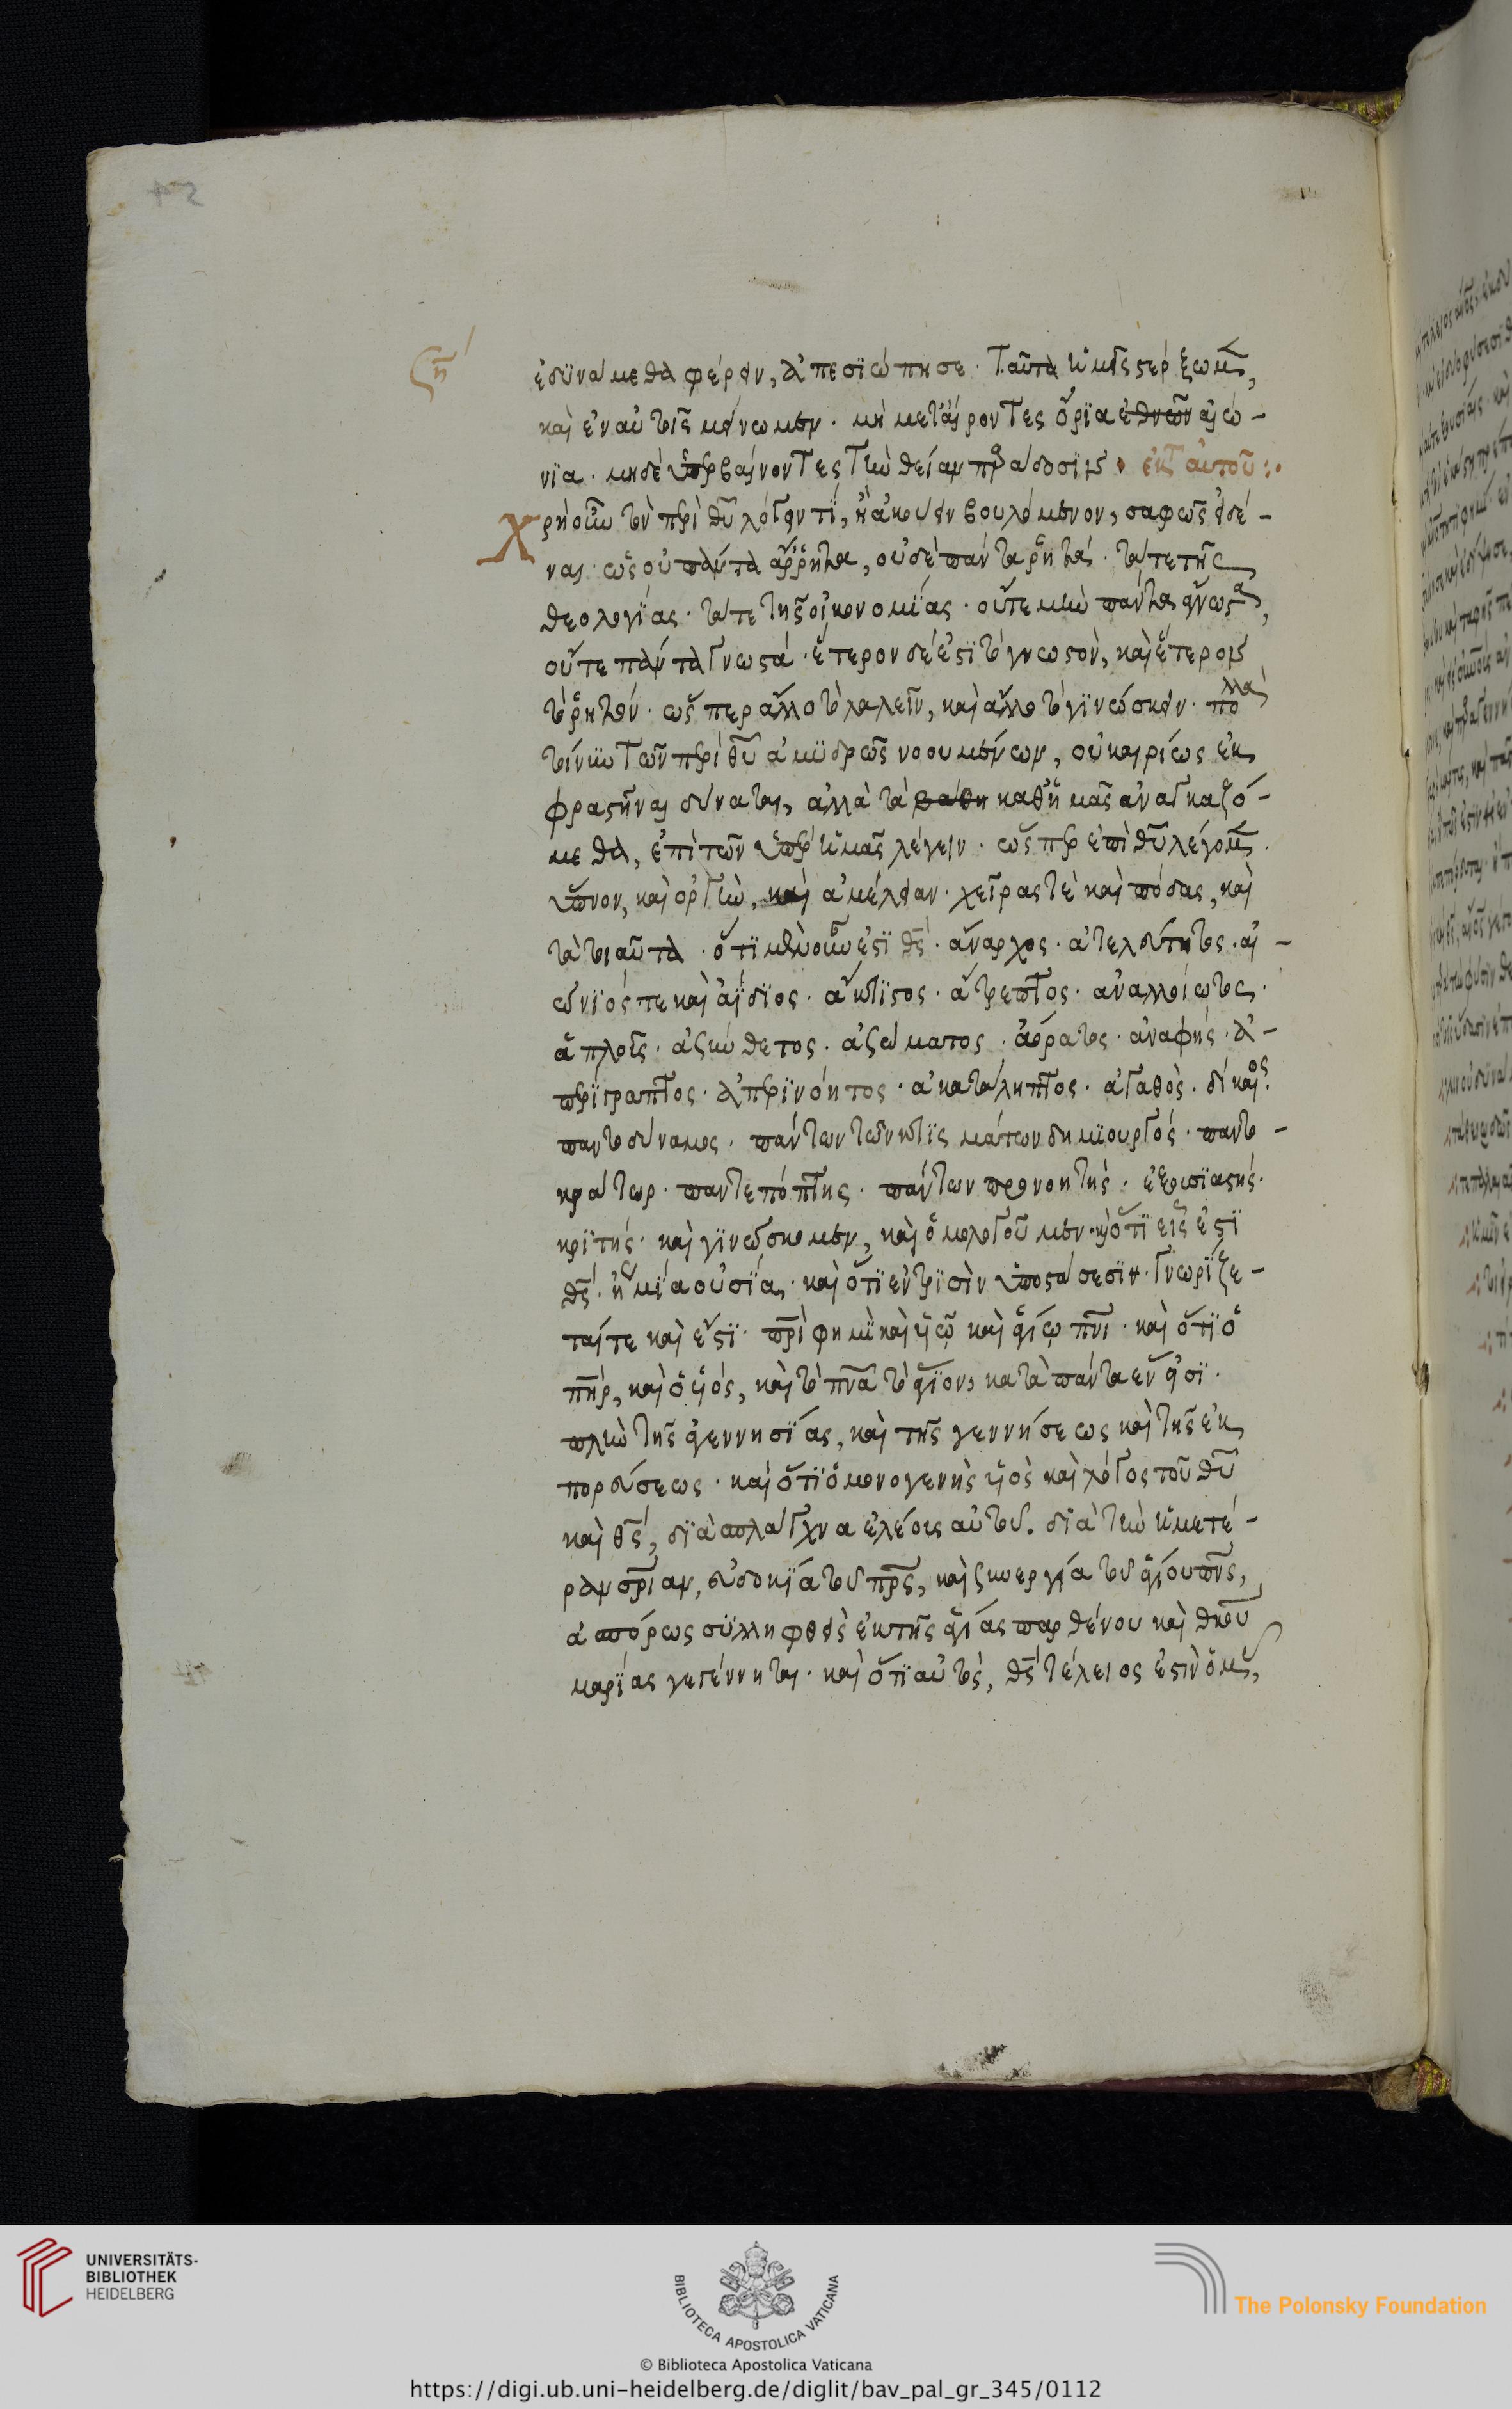 ϟη΄
ἐδϋνάμεθα φέρειν, ἀπεσϊώπησε. Ταῦτα ἡμεῖς στέρξωμεν,
καὶ ἐν αὐτοῖς μείνωμεν. μὴ μεταίροντες ὅρϊα ἐθνῶν αἰώ-
νϊα. μηδὲ ὑπερβαίνοντες τὴν θείαν παράδοσϊν. ἐκ τ αὐτοῦ:
Χρὴ οὖν τὸν περὶ θυ λέγειν τϊ, ἢ ἀκούειν βουλόμενον, σαφῶς εἰδέ-
ναι. ὡς οὐ πάντα ἄρρητα, οὐδὲ πάντα ῥητά. τά τε τῆς
θεολογίας. τά τε τῆς οἰκονομίας. οὔτε μὴν πάντα ἄγνωστα,
οὔτε πάντα γνωστά. ἕτερον δέ ἐστϊ τὸ γνωστὸν, καὶ ἕτερον
τὸ ῥητόν. ὥσπερ ἄλλο τὸ λαλεῖν, καὶ ἄλλο τὸ γϊνώσκειν. πολλὰ
τοίνυν τῶν περὶ θυ ἀμϋδρῶς νοουμένων, οὐ καιρίως ἐκ
φρασθῆναι δύναται, ἀλλὰ τὰ βάθη καθ ἡμᾶς ἀναγκαζό-
μεθα, ἐπὶ τῶν ὑπὲρ ἡμᾶς λέγειν. ὥσπερ ἐπὶ θυ λέγομεν.
ὕπνον, καὶ ὀργὴν, καὶ ἀμέλειαν. χεῖρας τὲ καὶ πόδας, καὶ
τὰ τοιαῦτα. ὅτϊ μὲν οὖν ἐστϊ θς. ἄναρχος. ἀτελεύτητος. αἰ-
ώνϊός τε καὶ ἀΐδϊος. ἄκτϊστος. ἄτρεπτος. ἀναλλοίωτος.
ἁπλοῦς. ἀσύνθετος. ἀσώματος. ἀόρατος. ἀναφής. ἀ-
περίγραπτος. ἀπερϊνόητος. ἀκατάληπτος. ἀγαθὸς. δίκαιος.
παντοδύναμος. πάντων τῶν κτϊσμάτων δημϊουργός. παντο-
κράτωρ. παντεπόπτης. πάντων προνοητής. ἐξουσϊαστής.
κρϊτής. καὶ γϊνώσκομεν, καὶ ὁμολογοῦμεν. καὶ ὅτϊ εἷς ἐστϊ
θς. ἤγ μϊα οὐσϊα. καὶ ὅτϊ ἐν τρϊσὶν ὑποστάσεσϊν. γνωρίζε-
ταί τε καὶ ἔστϊ. πρι φημϊ καὶ υἱῷ καὶ ἁγίῳ πνι. καὶ ὅτϊ ὁ
πηρ, καὶ ὁ υἱός, καὶ τὸ πνα τὸ ἅγϊον, κατὰ πάντα ἕν εἰσϊ.
πλὴν τῆς ἀγεννησϊας, καὶ τῆς γεννήσεως καὶ τῆς ἐκ
πορεύσεως. καὶ ὅτϊ ὁ μονογενὴς υἱὸς καὶ λόγος τοῦ θυ
καὶ θς, δϊὰ σπλάγχνα ἐλέους αὐτοῦ. δϊὰ τὴν ἡμετέ-
ραν σριαν, εὐδοκϊα τοῦ πρς, καὶ συνεργίᾳ τοῦ ἁγίου πνς,
ἀσπόρως συλληφθεὶς ἐκ τῆς ἁγίας παρθένου καὶ θκου
μαρίας γεγέννηται. καὶ ὅτϊ αὐτὸς, θς τέλειος ἐστὶν ὁμοῦ,
UNIVERSITÄTS-
BIBLIOTHEK
HEIDELBERG
BIBLIOTECA APOSTOLICA VATICANA
The Polonsky Foundation
© Biblioteca Apostolica Vaticana
https://digi.ub.uni-heidelberg.de/diglit/bav_pal_gr_345/0112